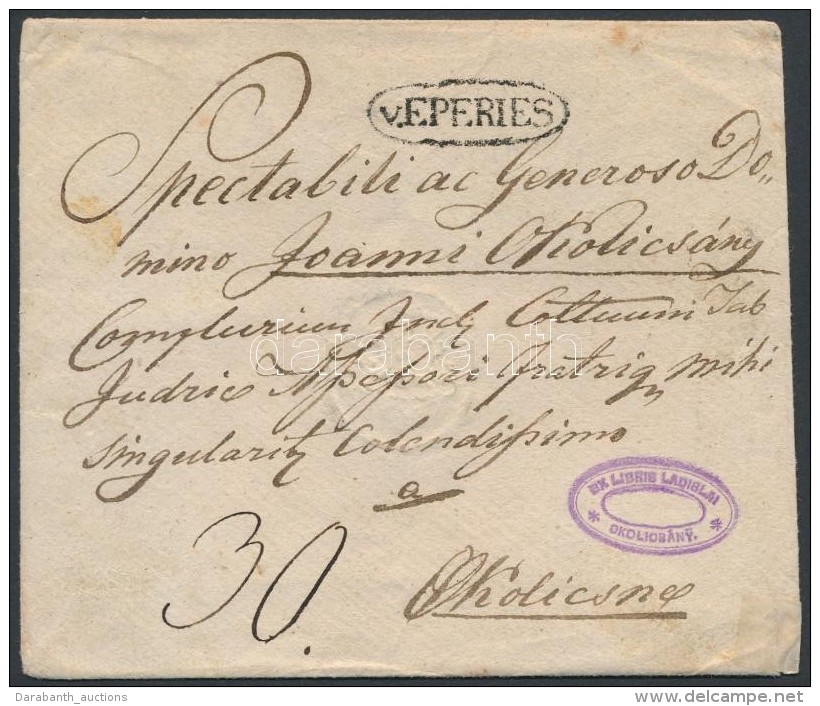 v.EPERIES
Spectabili ac Generoso Do„
mino Joanni Okolicsány
Complurium Incly Cottuum Tab
Judrie Assessori Fratriq mihi
singularitz Colendissimo
a
EX LIBRIS LADISLAI
* *
OKOLICSÁNY.
30.
Okolicsne
darabanth
Darabanth_auctions
delcampe.net